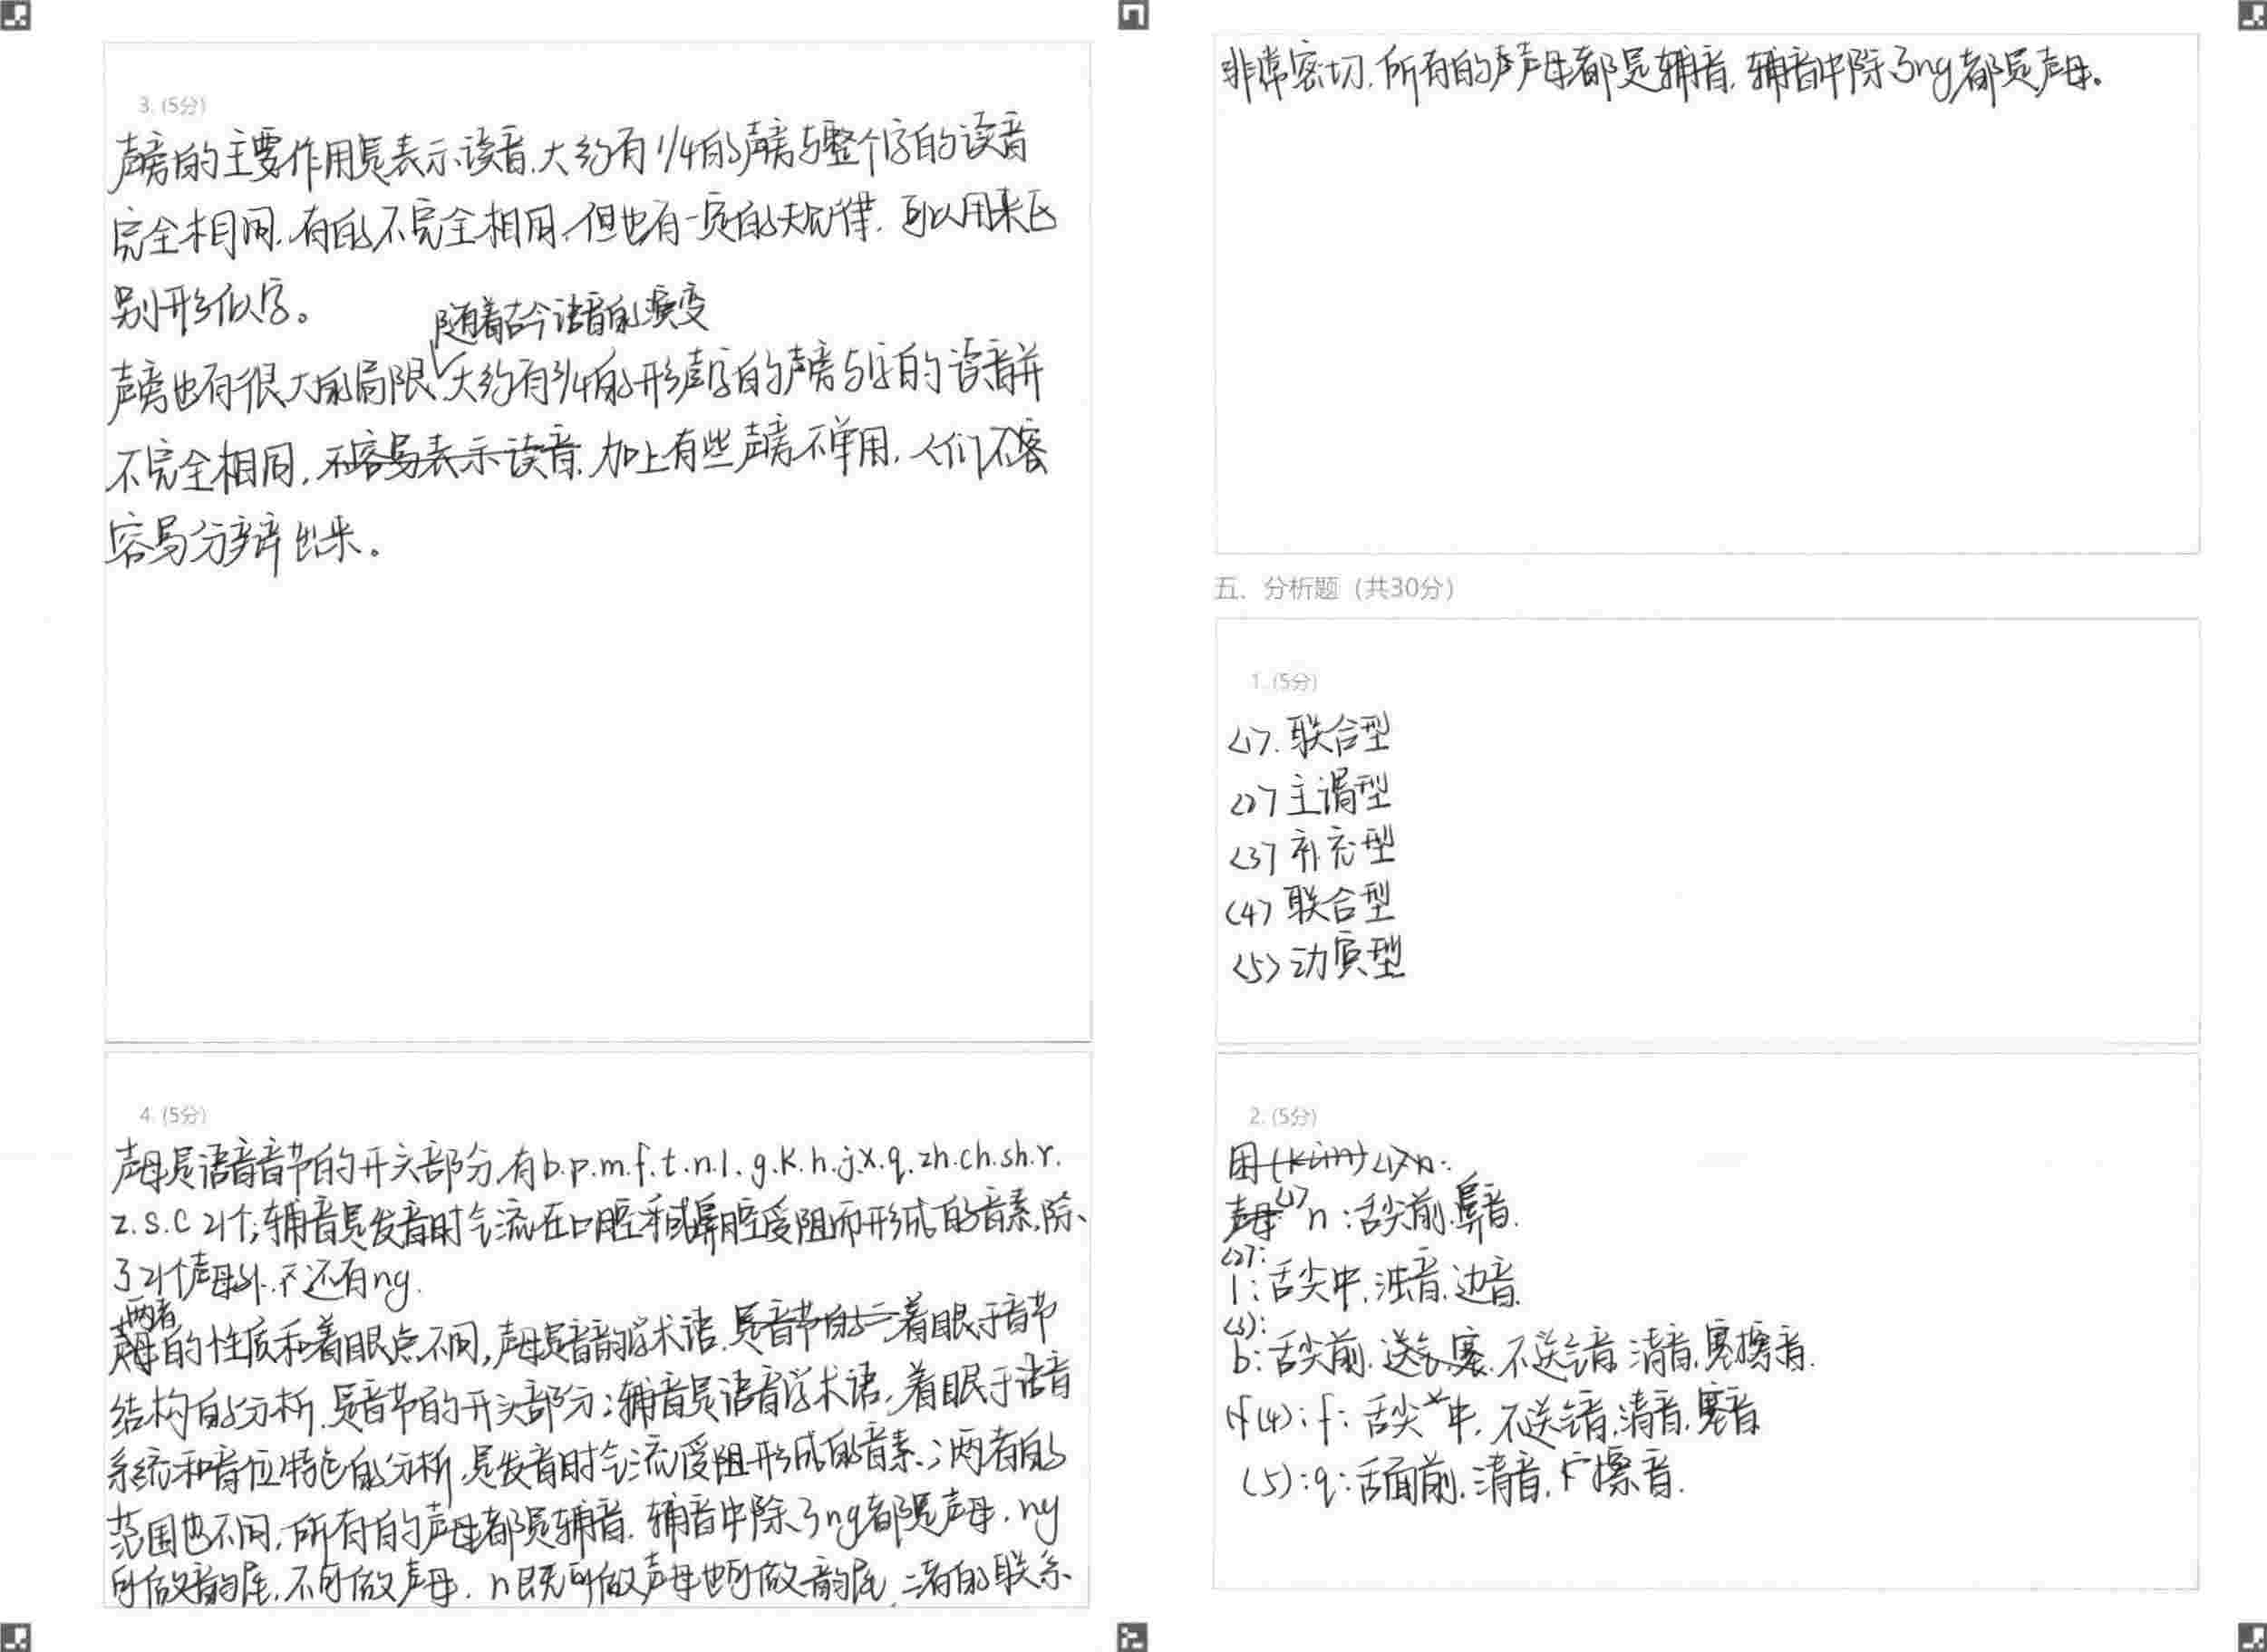 3. (5分)
声旁的主要作用是表示读音.大约有1/4的声旁与整个字的读音
完全相同.有的不完全相同.但也有一定的规律.可以用来区
别形似字。
随着古今语音的演变
声旁也有很大的局限.大约有3/4的形声字的声旁与字的读音并
不完全相同.不容易表示读音.加上有些声旁不单用.人们不容
容易分辨出来。
4. (5分)
声母是语音音节的开头部分.有b.p.m.f.t.n.l.g.k.h.j.x.q.zh.ch.sh.r.
z.s.c 21个;辅音是发音时气流在口腔和或鼻腔受阻而形成的音素.除
了21个声母外.还有ng.
两者
声母的性质和着眼点不同,声母是音韵学术语.是音节的二着眼于音节
结构的分析.是音节的开头部分;辅音是语音学术语.着眼于语音
系统和音位特色的分析.是发音时气流受阻形成的音素.;两者的
范围也不同.所有的声母都是辅音.辅音中除了ng都是声母.ng
可做韵尾.不可做声母.n既可做声母也可做韵尾.二者的联系
非常密切.所有的声母都是辅音.辅音中除了ng都是声母。
五、分析题（共30分）
1. (5分)
<1>.联合型
<2>主谓型
<3>补充型
<4>联合型
<5>动宾型
2. (5分)
困(kùn)<1>n:
声母<1>n:舌尖前.鼻音.
<2>:
l:舌尖中.浊音.边音.
<3>:
b:舌尖前.送气.塞.不送气音.清音.塞擦音.
f(4):f:舌尖中.不送气音.清音.塞音
(5):q:舌面前.清音.擦音.